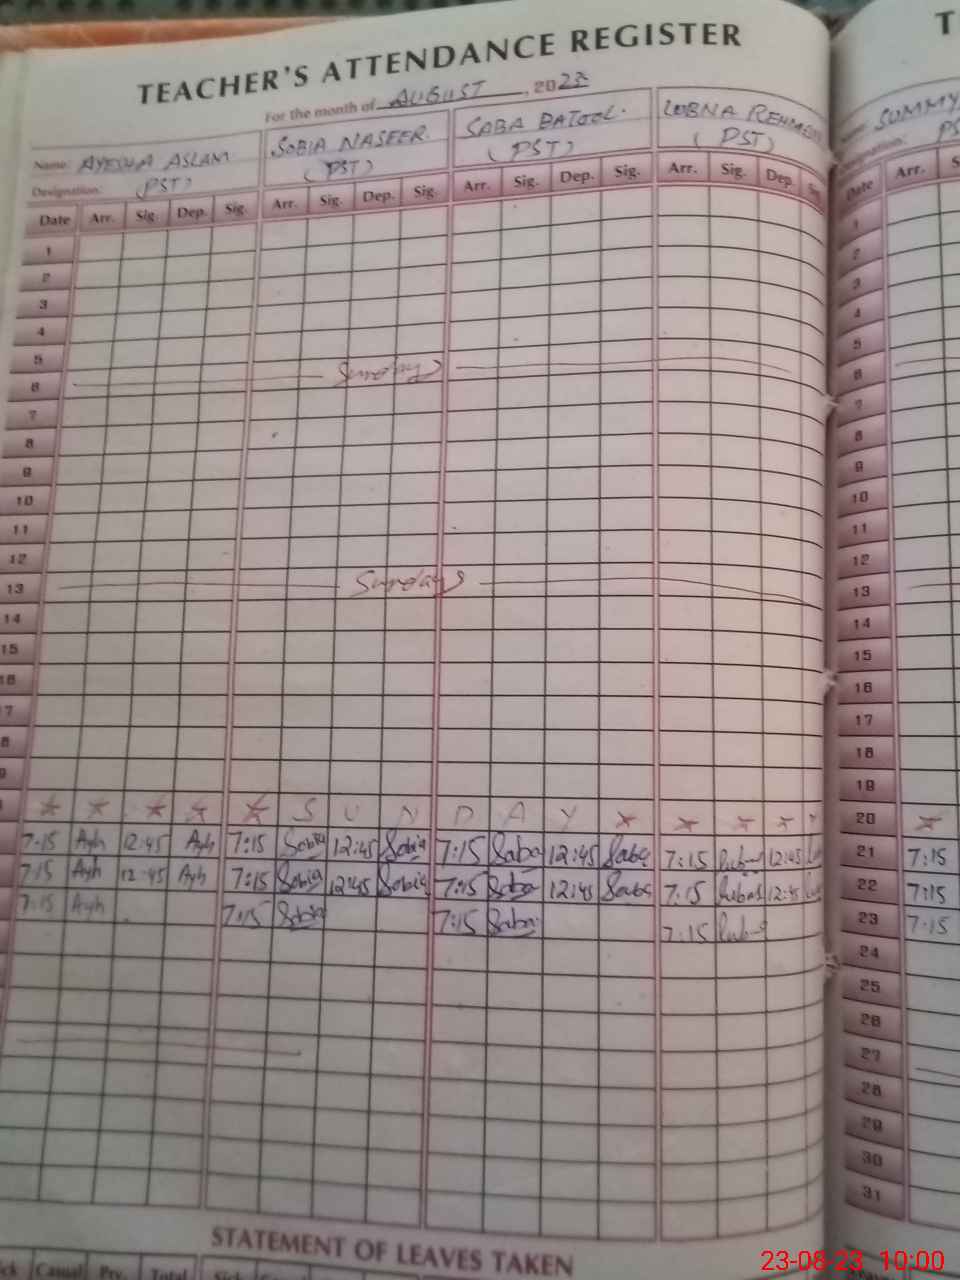 TEACHER'S ATTENDANCE REGISTER
For the month of AUGUST, 2023
Name: AYESHA ASLAM SOBIA NASEER. SABA BATOOL. LUBNA REHMAN SUMMY
Designation: (PST) (PST) (PST) (PST) PS
Date Arr. Sig. Dep. Sig. Arr. Sig. Dep. Sig. Arr. Sig. Dep. Sig. Arr. Sig. Dep. Date Arr.
1 1
2 2
3 3
4 4
5 5
6 Sunday 6
7 7
8 8
9 9
10 10
11 11
12 12
13 Sunday 13
14 14
15 15
16 16
7 17
8 18
9 19
S U N D A Y 20
7:15 Ayh 12:45 Ayh 7:15 Sobia 12:45 Sobia 7:15 Saba 12:45 Saba 7:15 12:45 21 7:15
7:15 Ayh 12:45 Ayh 7:15 Sobia 12:45 Sobia 7:15 Saba 12:45 Saba 7:15 12:45 22 7:15
7:15 Ayh 7:15 Sobia 7:15 Saba 7:15 23 7:15
24
25
26
27
28
29
30
31
STATEMENT OF LEAVES TAKEN
Casual Prv. Total Sick
23-08-23 10:00